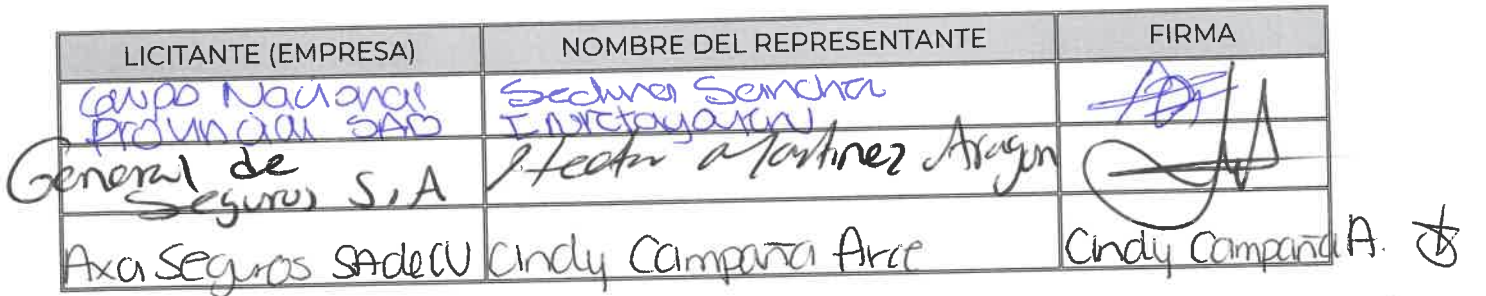 LICITANTE (EMPRESA) NOMBRE DEL REPRESENTANTE FIRMA
Grupo Nacional
Provincial SAB
Sanchez
General de
Seguros S.A
Hector Martinez Aragon
Axa Seguros SAdeCV Cindy Campaña Arce Cindy Campaña A.